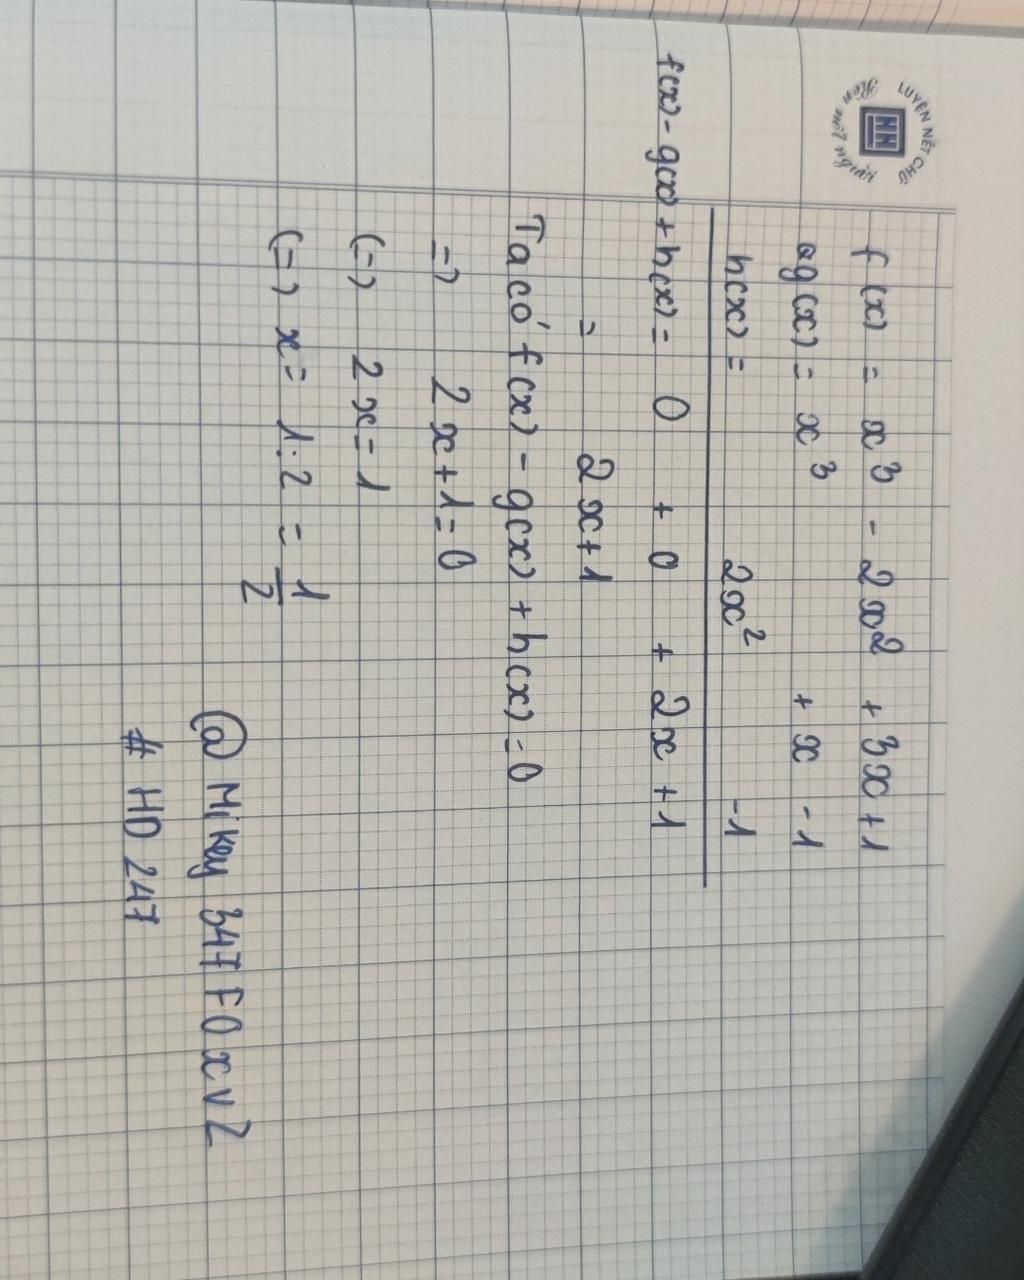 LUYỆN NÉT CHỮ
HN
Rèn nết người
f(x) = x³ - 2x² + 3x + 1
g(x) = x³ + x - 1
h(x) = 2x² - 1
f(x) - g(x) + h(x) = 0 + 0 + 2x + 1
= 2x + 1
Ta có f(x) - g(x) + h(x) = 0
=) 2x + 1 = 0
(=) 2x = 1
(=) x = 1 : 2 = 1/2
@ Mikey 347 FOxv2
# HD 247